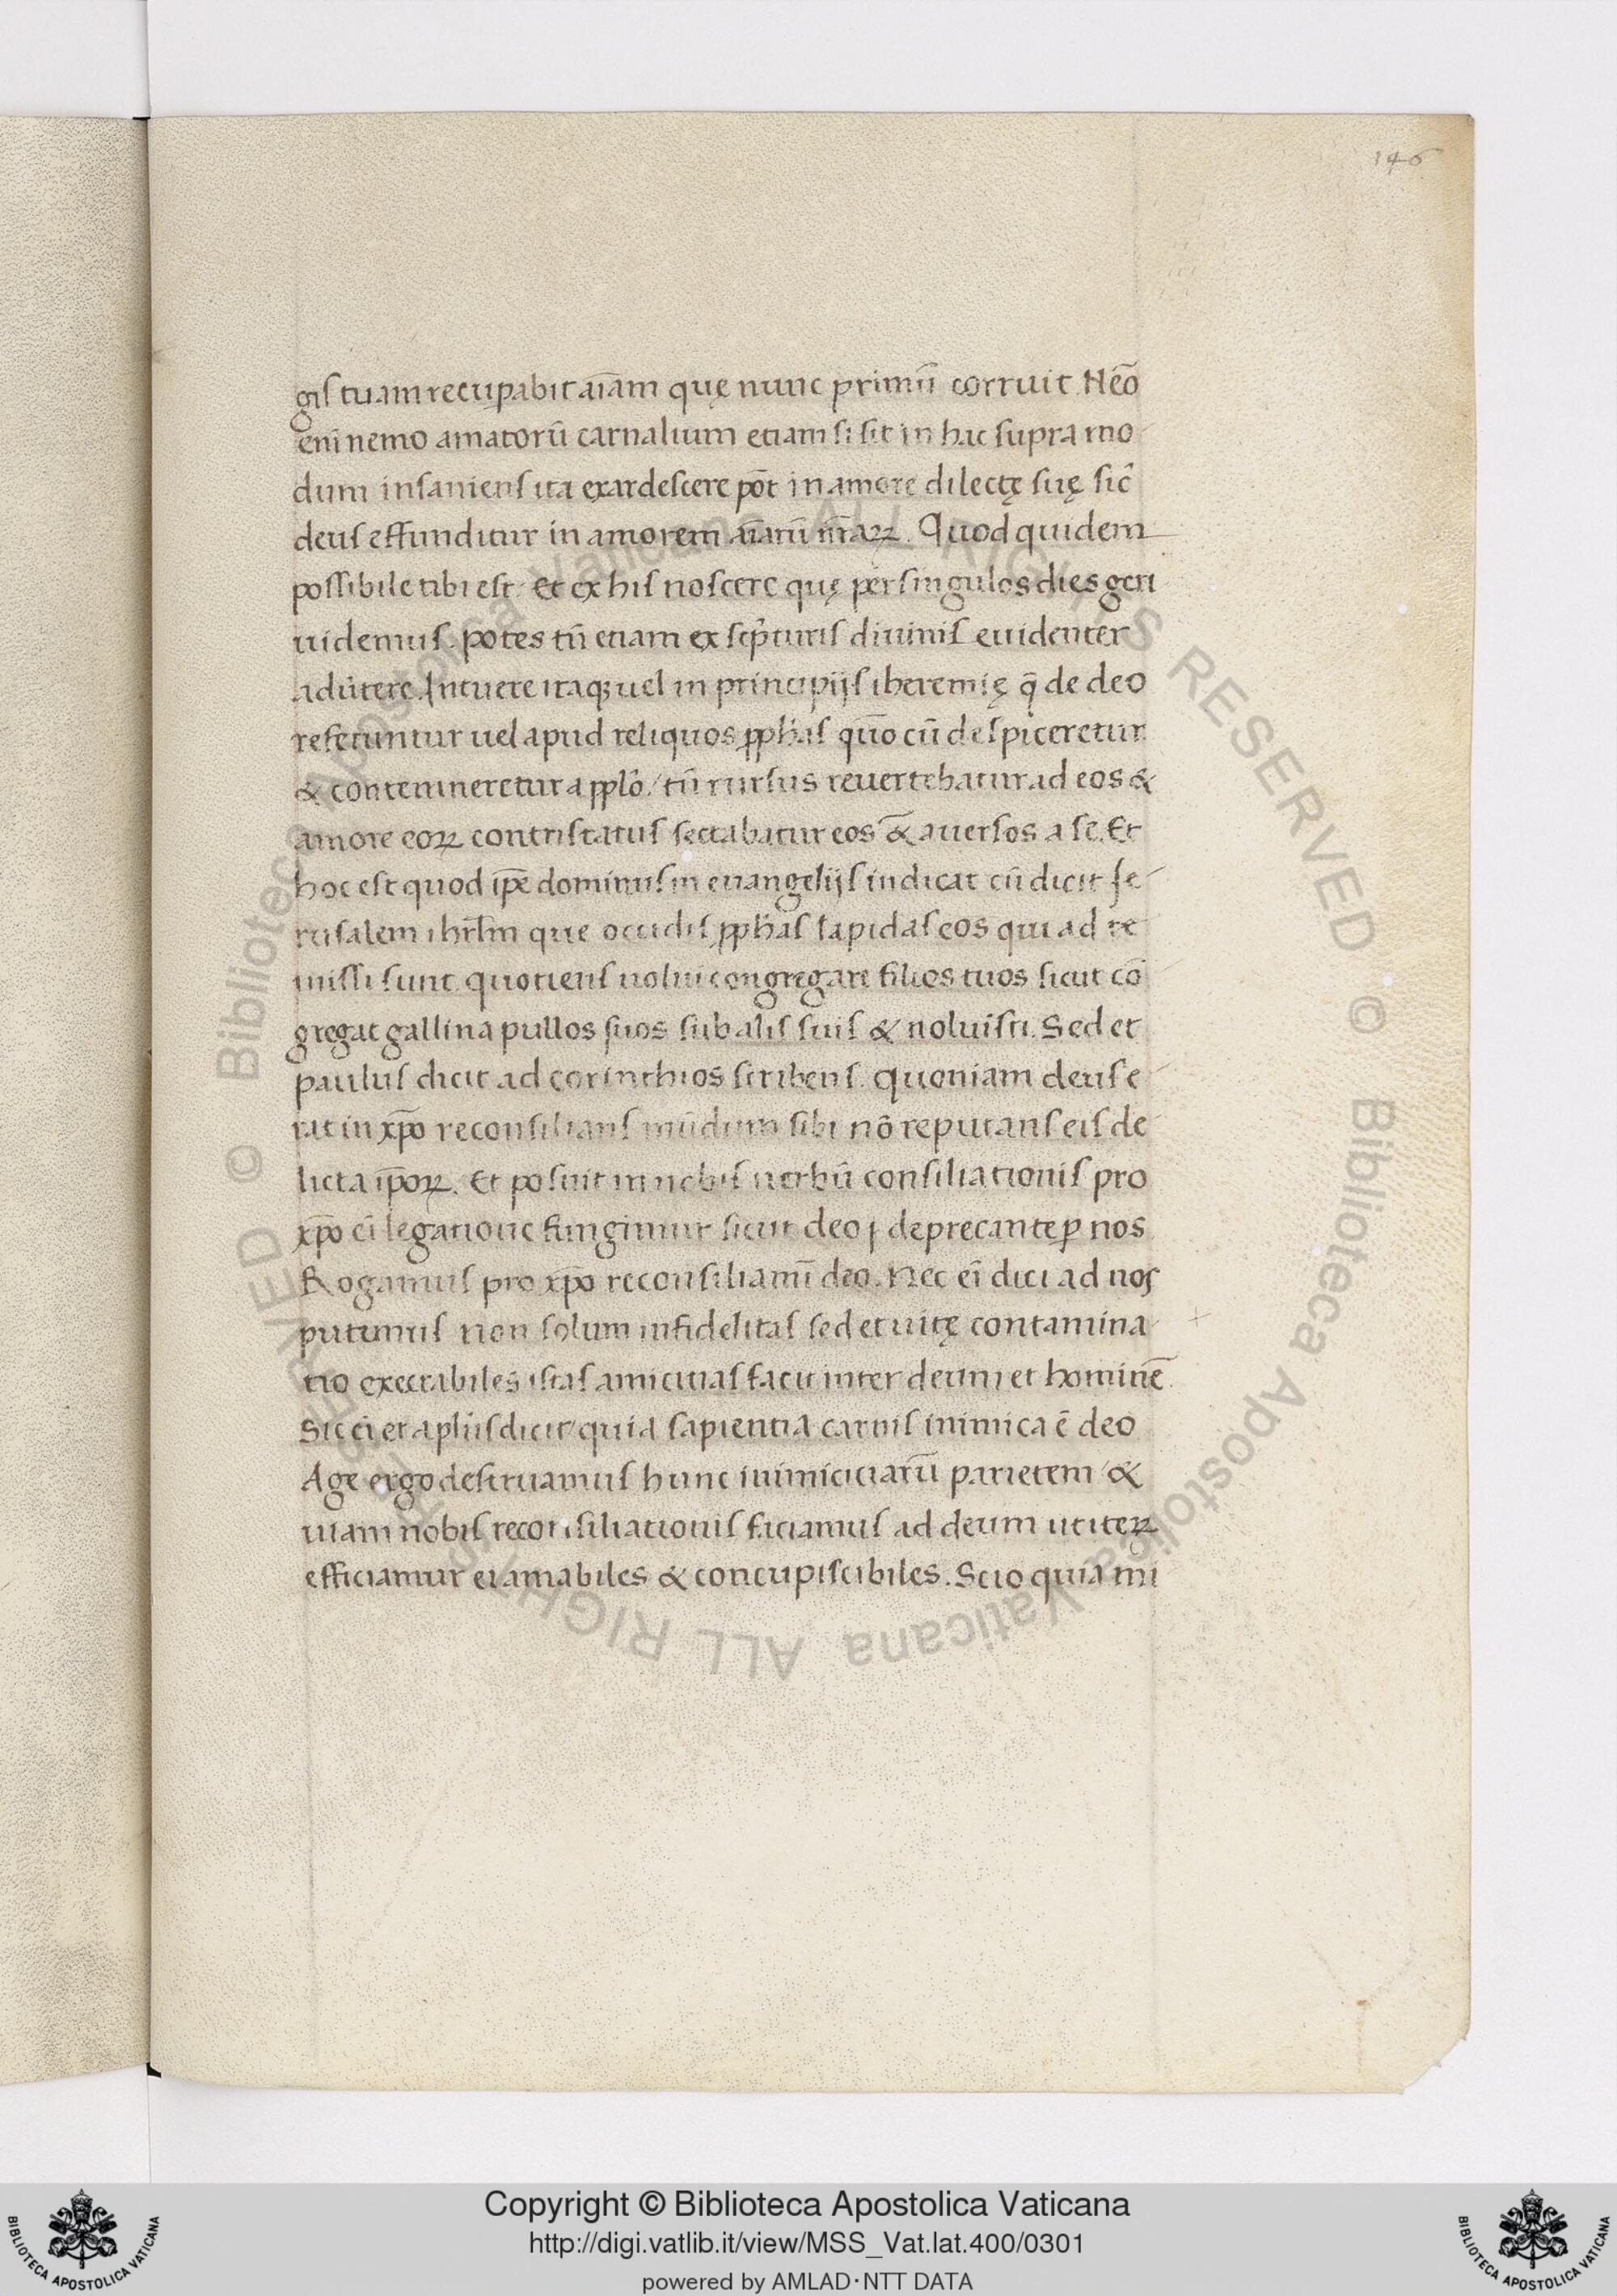 146
gis tuam recuꝑabit aīam quę nunc primū corruit. Neō
eni nemo amatorū carnalium etiam si sit in hac supra mo
dum insaniens ita exardescere pōt in amore dilectę suę sic̄
deus effunditur in amorem aīarū nr̄aꝝ. Quod quidem
possibile tibi est. Et ex his noscere quę per singulos dies geri
uidemus. potes tn̄ etiam ex scṗturis diuinis euidenter
adūtere. Intuere itaqꝫ uel in principijs iheremię q̄ de deo
referuntur uel apud reliquos ꝓphās quō cū despiceretur
& contemneretur a pplō / tn̄ rursus reuertebatur ad eos &
amore eoꝝ contristatus sectabatur eos & auersos a se. Et
hoc est quod ip̄e dominus in euangelijs indicat cū dicit Ie
rusalem ihrl̄m que occidis ꝓphās lapidas eos qui ad te
missi sunt. quotiens uolui congregare filios tuos sicut cō
gregat gallina pullos suos sub alis suis & noluisti. Sed et
paulus dicit ad corinthios scribens. Quoniam deus e
rat in xp̄o reconsilians mūdum sibi nō reputans eis de
licta ip̄oꝝ. Et posuit in nobis uerbū consiliationis pro
xp̄o ei legatione fungimur sicut deo deprecante ꝑ nos
Rogamus pro xp̄o reconsiliamī deo. Nec eī dici ad nos
putemus non solum infidelitas sed et uitę contamina
tio execrabiles istas amicitias facit inter deum et hominē
Sic eī et aplūs dicit / quia sapientia carnis inimica ē deo
Age ergo destruamus hunc inimiciciarū parietem / &
uiam nobis reconsiliationis faciamus ad deum ut iteꝝ
efficiamur ei amabiles & concupiscibiles. Scio quia mi
© Biblioteca Apostolica Vaticana ALL RIGHTS RESERVED
© Biblioteca Apostolica Vaticana ALL RIGHTS RESERVED
BIBLIOTECA APOSTOLICA VATICANA
Copyright © Biblioteca Apostolica Vaticana
http://digi.vatlib.it/view/MSS_Vat.lat.400/0301
powered by AMLAD·NTT DATA
BIBLIOTECA APOSTOLICA VATICANA